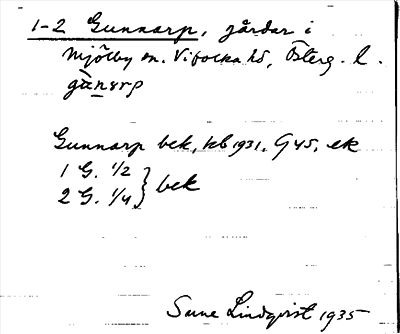 1-2 Gunnarp, gårdar i
Mjölby sn. Vifolka hd, Österg. l.
Gunnarp bek, kb 1931. G45, ek
1 G. 1/2
2 G. 1/4 } bek
Sune Lindqvist 1935